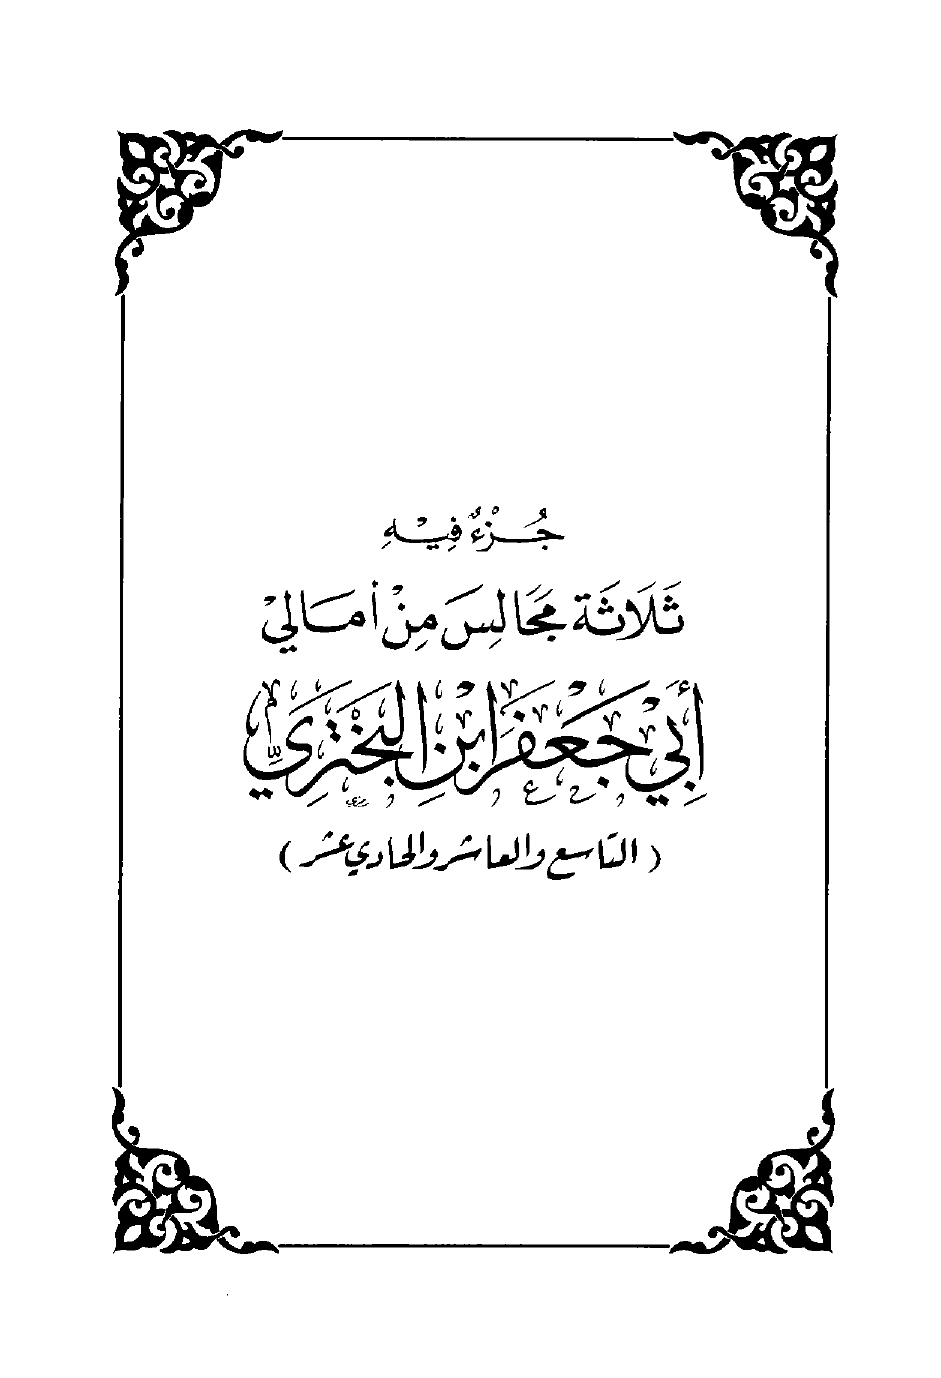 جُزْءٌ فِيْهِ
ثَلَاثَة مَجَالِسَ مِنْ أمَالِيْ
أَبِيْ جَعْفَرَ ابْنِ البَخْتَرِيّ
(التاسع والعاشر والحادي عشر)